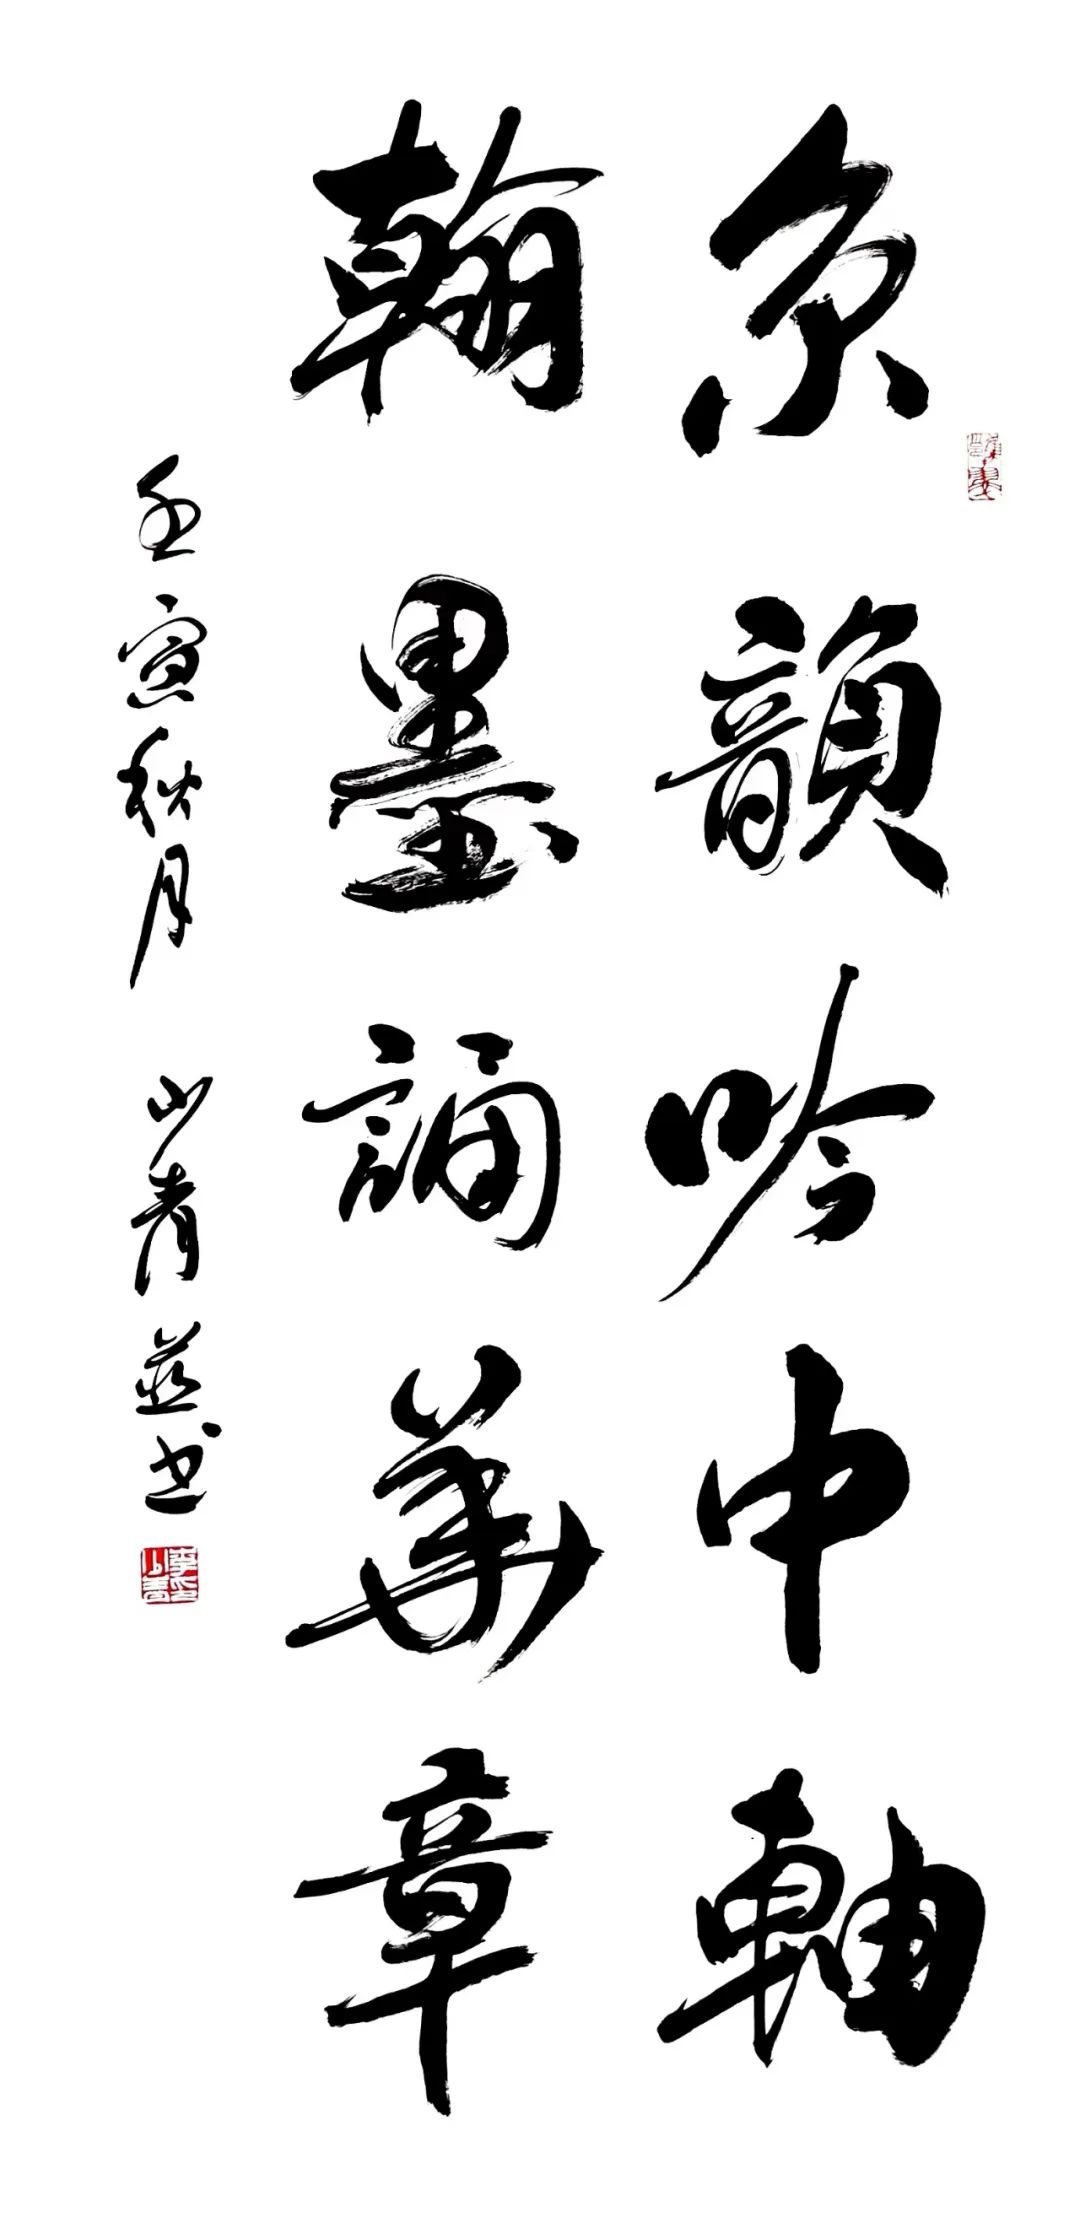 京韻吟中軸
翰墨誦華章
壬寅秋月 山青並書